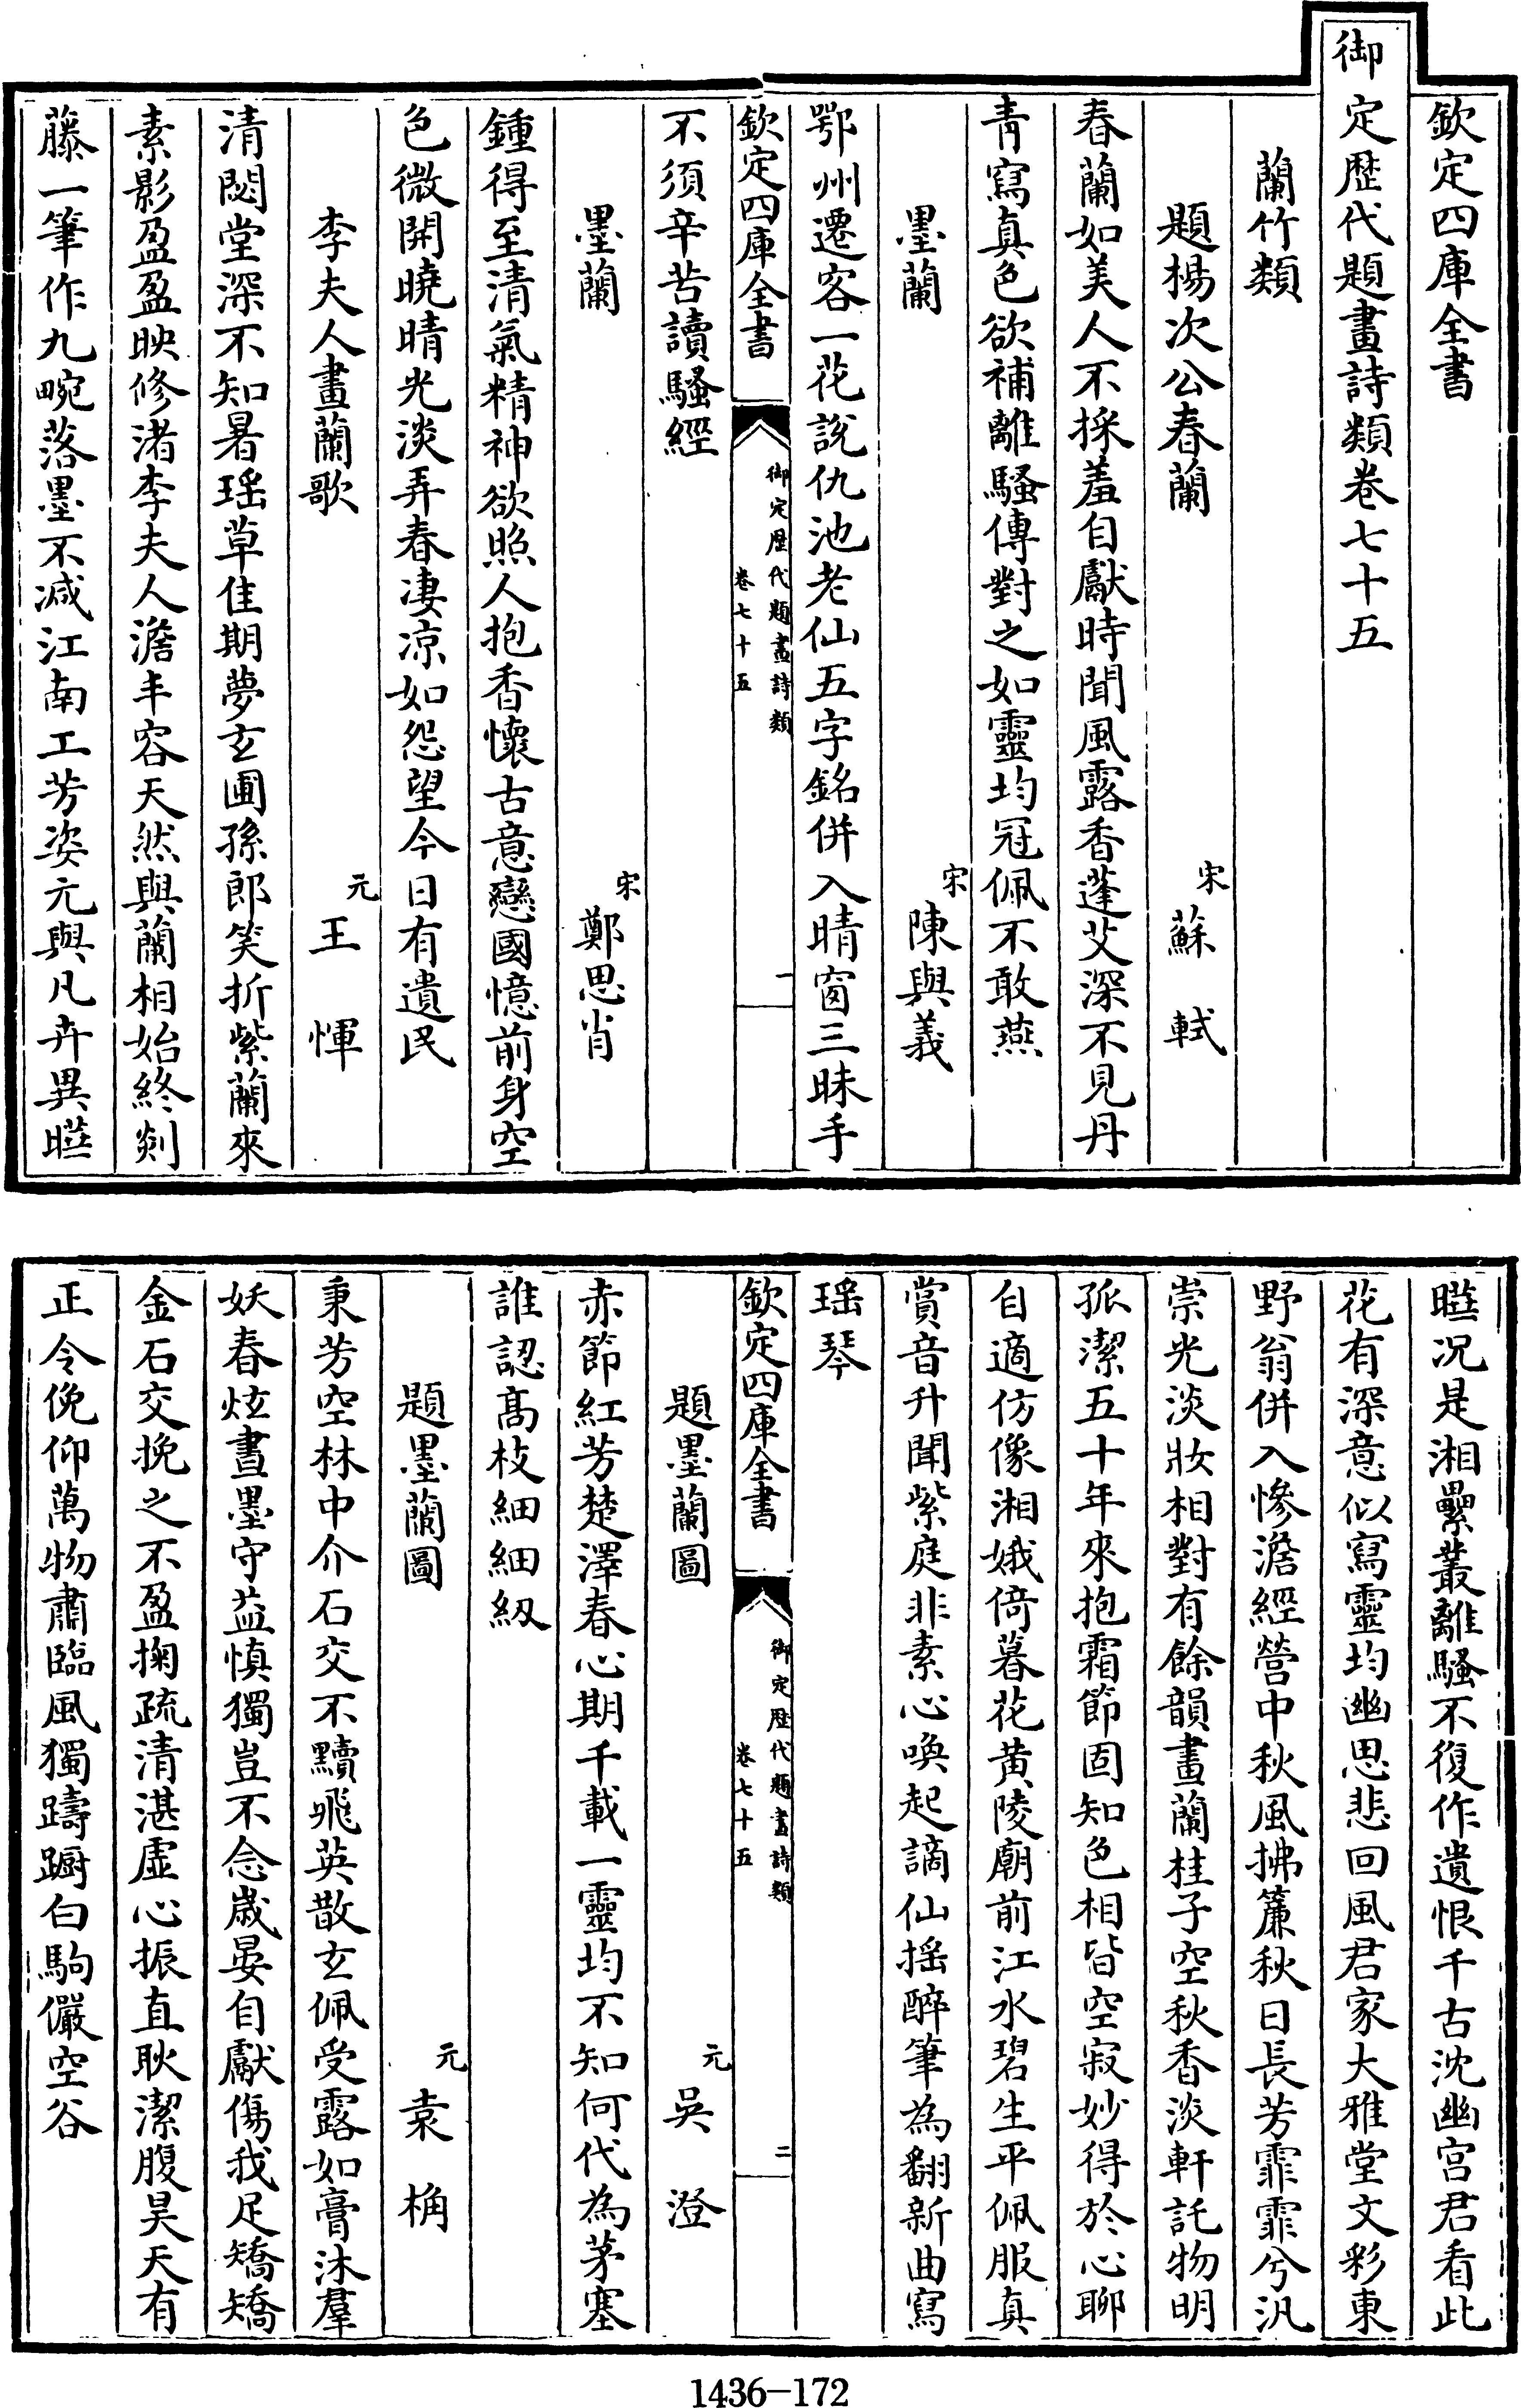 欽定四庫全書
御定歴代題畫詩類卷七十五
蘭竹類
題楊次公春蘭
宋蘇軾
春蘭如美人不採羞自獻時聞風露香蓬艾深不見丹
青寫真色欲補離騷傳對之如靈均冠佩不敢燕
墨蘭
宋陳與義
鄂州遷客一花說仇池老仙五字銘併入晴窗三昧手
欽定四庫全書
御定歴代題畫詩類
卷七十五
一
不須辛苦讀騷經
墨蘭
宋鄭思肖
鍾得至清氣精神欲照人抱香懷古意戀國憶前身空
色微開曉晴光淡弄春淒凉如怨望今日有遺民
李夫人畫蘭歌
元王惲
清閟堂深不知暑瑶草佳期夢玄圃孫郎笑折紫蘭來
素影盈盈映修渚李夫人澹丰容天然與蘭相始終剡
藤一筆作九畹落墨不减江南工芳姿元與凡卉異𥇰
𥇰况是湘纍叢離騷不復作遺恨千古沈幽宫君看此
花有深意似寫靈均幽思悲回風君家大雅堂文彩東
野翁併入慘澹經營中秋風拂簾秋日長芳霏霏兮汎
崇光淡妝相對有餘韻畫蘭桂子空秋香淡軒託物明
孤潔五十年來抱霜節固知色相皆空寂妙得於心聊
自適仿像湘娥倚暮花黄陵廟前江水碧生平佩服真
賞音升聞紫庭非素心喚起謫仙揺醉筆為翻新曲寫
瑶琴
欽定四庫全書
御定歴代題畫詩類
卷七十五
二
題墨蘭圖
元吳澄
赤節紅芳楚澤春心期千載一靈均不知何代為茅塞
誰認髙枝細細紉
題墨蘭圖
元袁桷
秉芳空林中介石交不黷飛英散玄佩受露如膏沐羣
妖春炫晝墨守益慎獨豈不念歲晏自獻傷我足矯矯
金石交挽之不盈掬疏清湛虛心振直耿潔腹昊天有
正令俛仰萬物肅臨風獨躊躕白駒儼空谷
1436-172